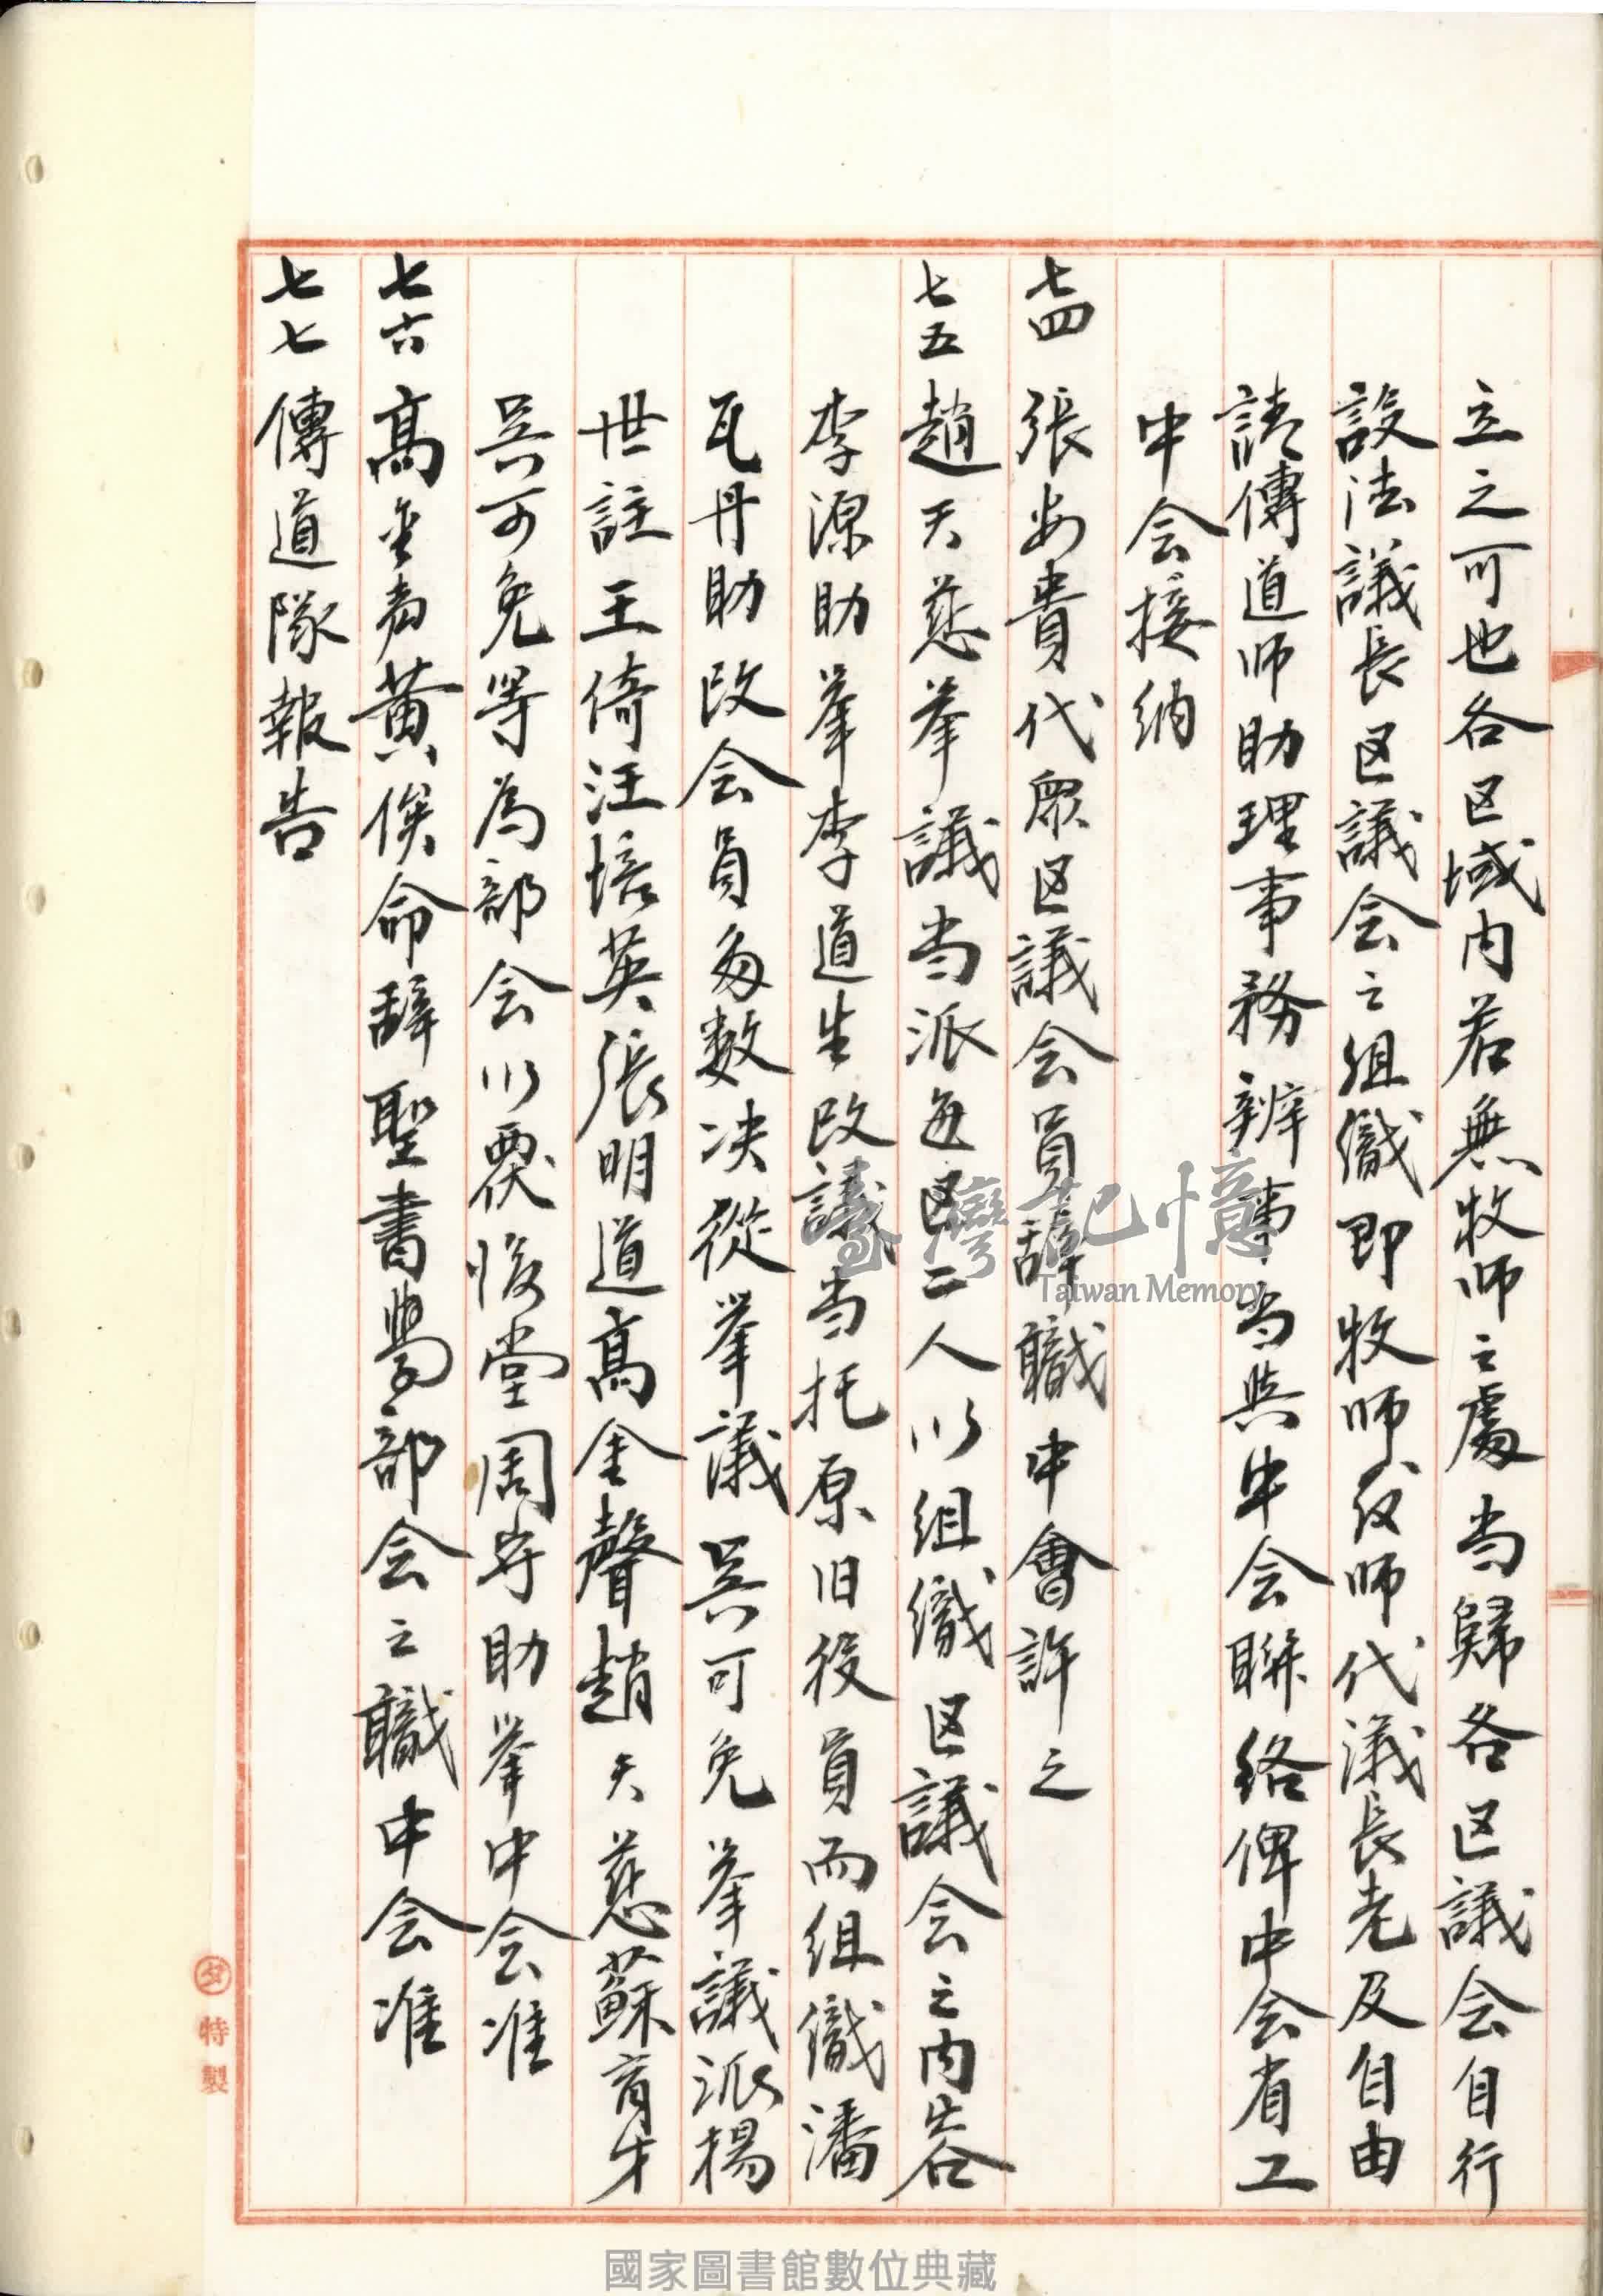 立之可也各区域内若無牧师之處当歸各区議会自行
設法議長区議会之組織即牧师伩师代議長老及自由
請傳道师助理事務辨事当與中会聯络俾中会省工
中会接纳
七四 張安貴代眾区議会員辭職中會許之
七五 趙天慈举議当派每区二人以組織区議会之内容
李源助举李道生改議当托原旧役員而组織潘
瓦丹助改会員多数决從举議吴可免举議派楊
世註王倚汪培英張明道高金聲趙天慈蘇育才
吴可免等為部会以覆悛堂周宇助举中会准
七六 高金声黄俟命辞聖書學部会之職中会准
七七 傳道隊報告
特製
臺灣記憶
Taiwan Memory
國家圖書館數位典藏